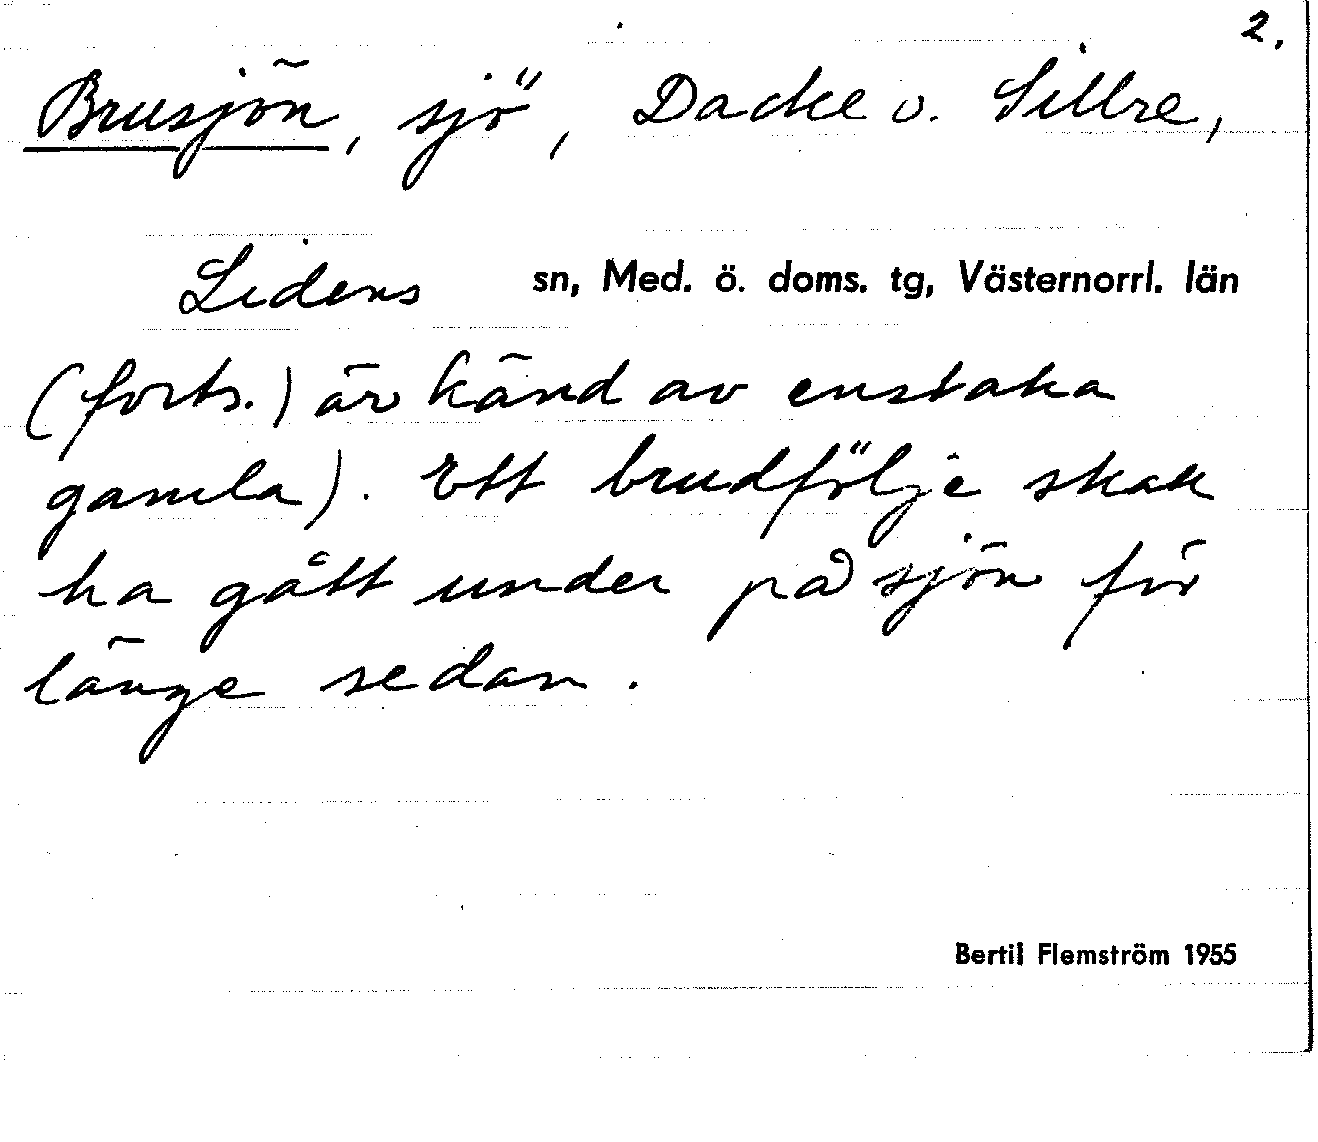 2.
Brusjön, sjö, Dacke o. Sillre,
Lidens sn, Med. ö. doms. tg, Västernorrl. län
(forts.) är känd av enstaka
gamla). Ett brudfölje skall
ha gått under på sjön för
länge sedan.
Bertil Flemström 1955